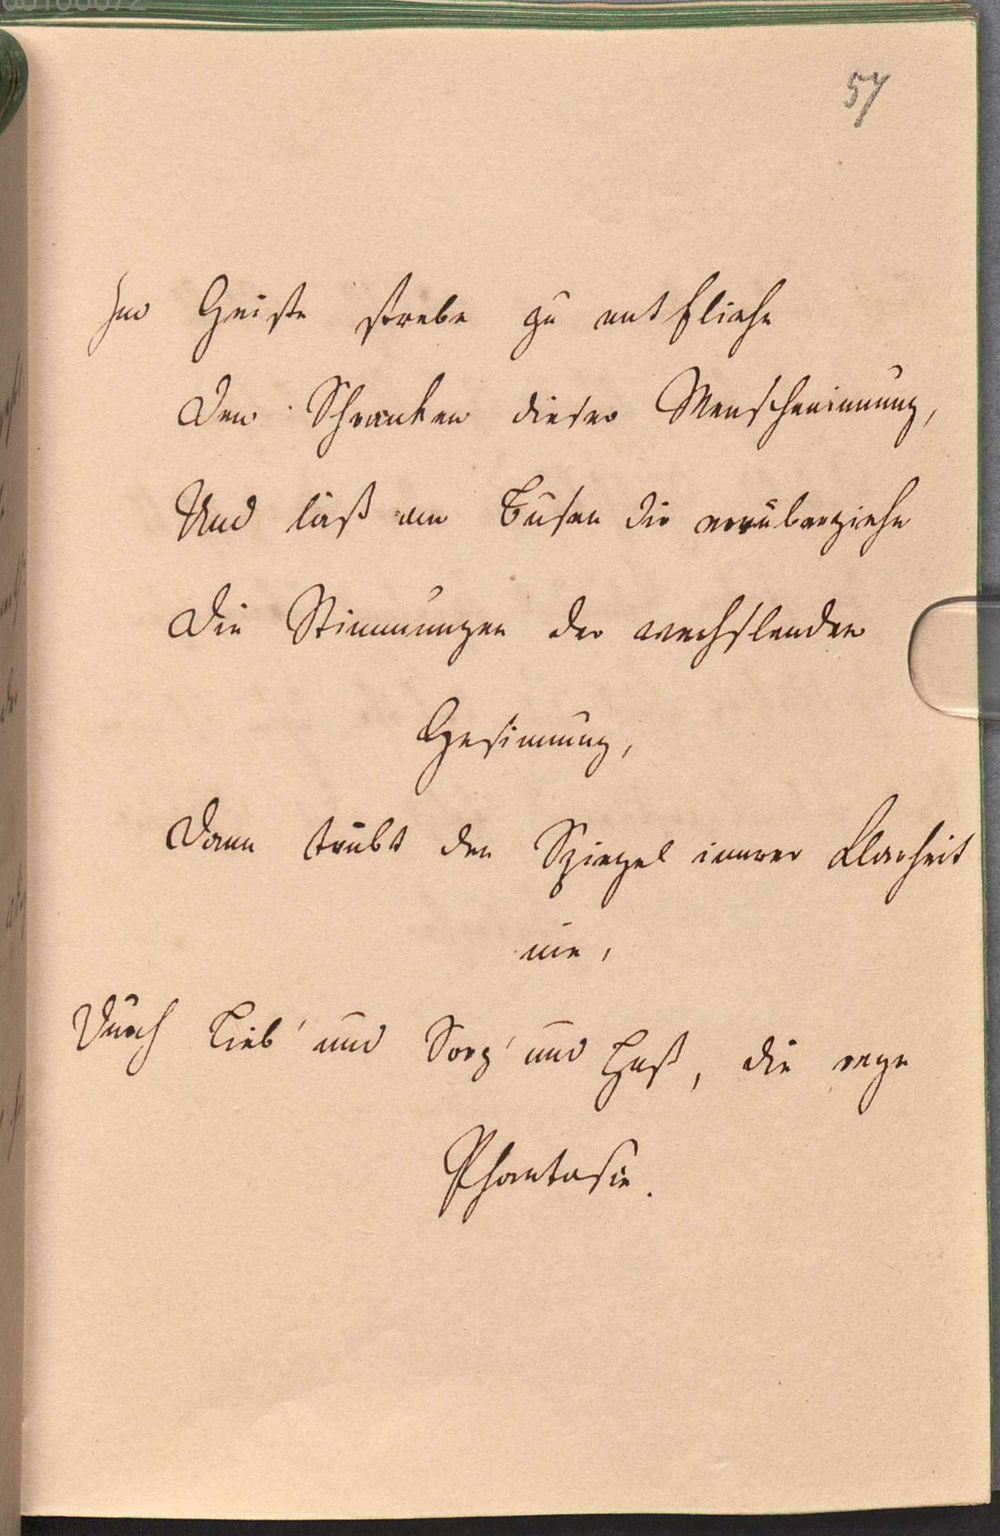 57
Im Geiste strebe zu entfliehn
Den Schranken dieser Menscheninnung,
Und laß am Busen dir vorüberziehn
Die Stimmungen der wechslenden
Gesinnung,
Dann trübt den Spiegel innrer Klarheit
nie,
Durch Lieb' und Sorg' und Haß, die rege
Phantasie.